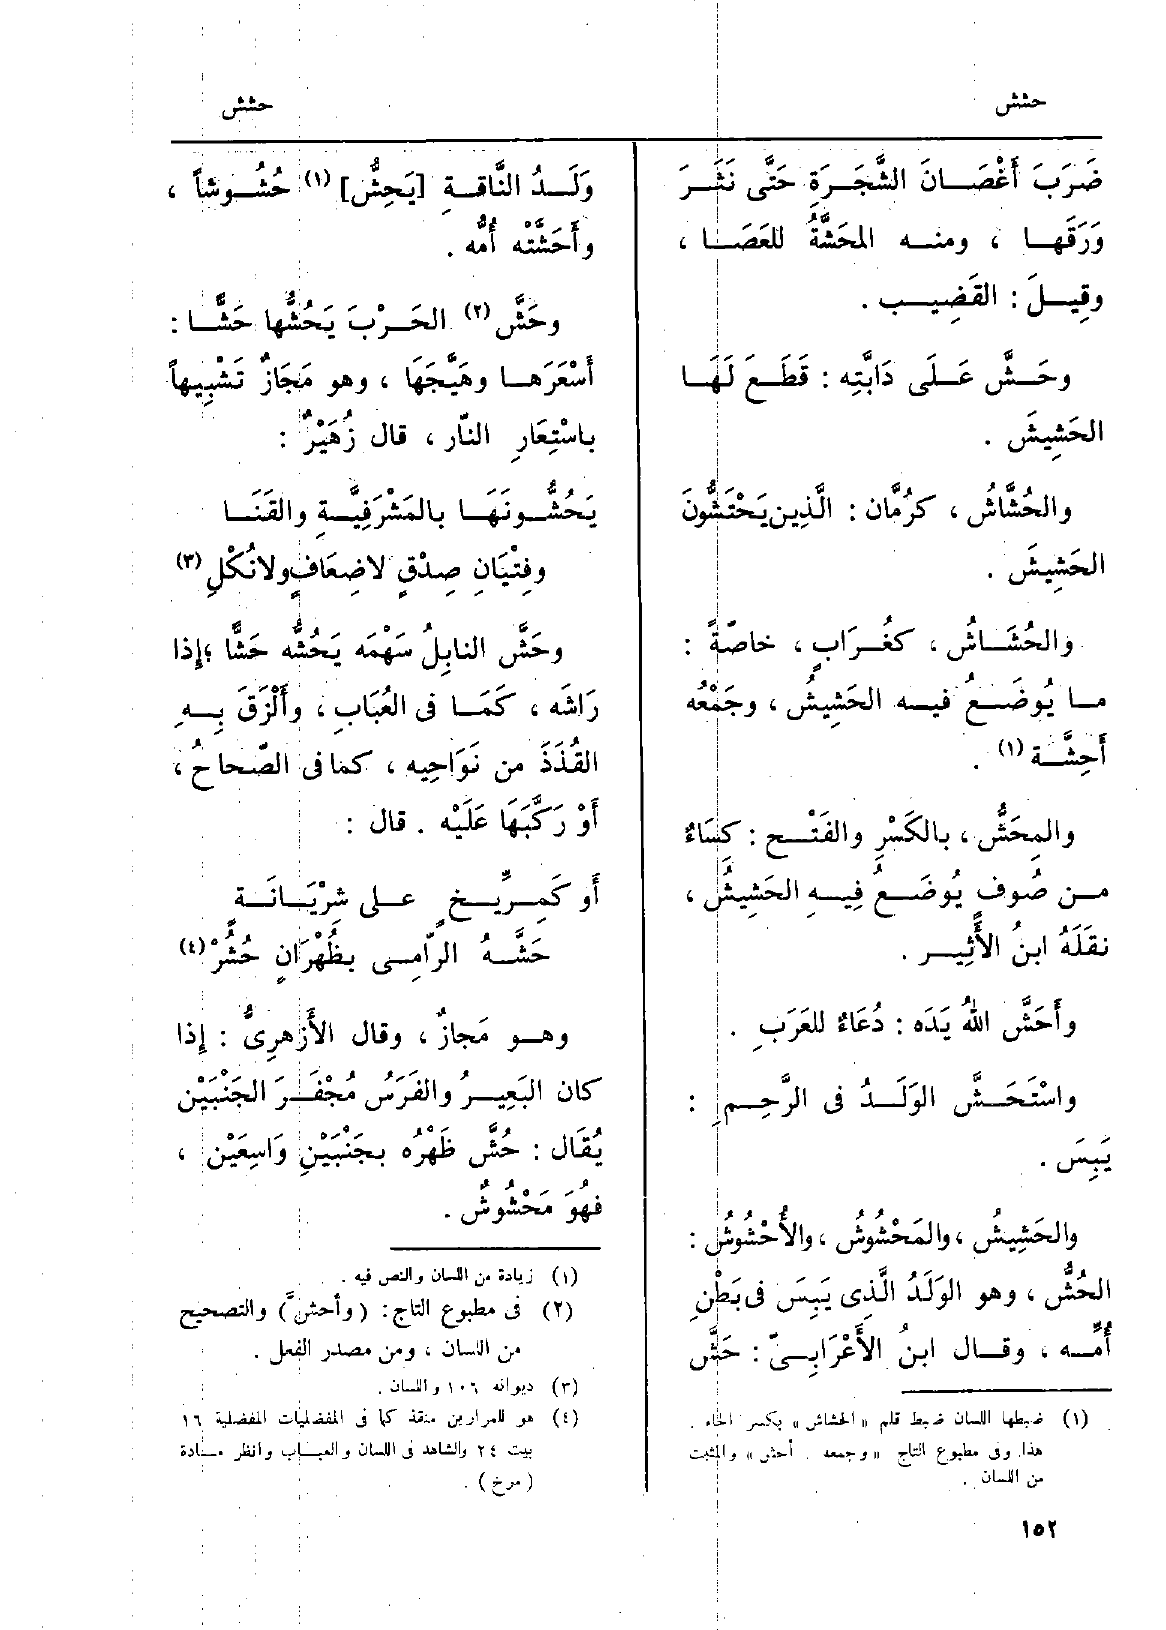 حشش
حشش
ضَرَبَ أَغْصَانَ الشَّجَرَةِ حَتَّى نَثَرَ
وَرَقَها ، ومنه المحَشَّةُ للعَصَا ،
وقِيلَ : القَضِيب .
وحَشَّ عَلَى دَابَّتِه : قَطَعَ لَهَا
الحَشِيشَ .
والحُشَّاشُ ، كرُمَّان : الَّذِين يَحْتَشُّونَ
الحَشِيشَ .
والحُشَاشُ ، كغُرَابٍ ، خاصَّةً :
ما يُوضَعُ فيه الحَشِيشُ ، وجَمْعُه
أَحِشَّة (١) .
والمِحَشُّ ، بالكَسْرِ والفَتْح : كِسَاءٌ
من صُوف يُوضَعُ فِيهِ الحَشِيشُ ،
نقَلَهُ ابنُ الأَثِير .
وأَحَشَّ اللهُ يَدَه : دُعَاءٌ للعَرَبِ .
واسْتَحَشَّ الوَلَدُ فى الرَّحِمِ :
يَبِسَ .
والحَشِيشُ ، والمَحْشُوشُ ، والأُحْشُوشُ :
الحُشُّ ، وهو الوَلَدُ الَّذِى يَبِسَ فى بَطْنِ
أُمِّه ، وقال ابنُ الأَعْرَابِىّ : حَشَّ
(١) ضبطها اللسان ضبط قلم « الحشاش » بكسر الحاء .
هذا. وفى مطبوع التاج « وجمعه . أحش » والمثبت
من اللسان .
وَلَدُ النَّاقَةِ [يَحِشُّ] (١) حُشُوشاً ،
وأَحَشَّتْه أُمُّه .
وحَشَّ (٢) الحَرْبَ يَحُشُّها حَشًّا :
أَسْعَرَها وهَيَّجَهَا ، وهو مَجَازٌ تَشْبِيهاً
باسْتِعَارِ النّار ، قال زُهَيْرٌ :
يَحُشُّونَهَا بالمَشْرَفِيَّةِ والقَنَا
وفِتْيَانِ صِدْقٍ لاضِعَافٍ ولانُكْلِ (٣)
وحَشَّ النابِلُ سَهْمَه يَحُشُّه حَشًّا ؛ إِذا
رَاشَه ، كَمَا فى العُبَابِ ، وأَلْزَقَ بِهِ
القُذَذَ من نَوَاحِيه ، كما فى الصّحاحُ ،
أَوْ رَكَّبَهَا عَلَيْه . قال :
أَو كَمِرِّيخٍ على شِرْيَانَةٍ
حَشَّهُ الرّامِى بظُهْرَانٍ حُشُرْ (٤)
وهو مَجازٌ ، وقال الأَزْهرِىُّ : إِذا
كان البَعِيرُ والفَرَسُ مُجْفَرَ الجَنْبَيْنِ
يُقَال : حُشَّ ظَهْرُه بجَنْبَيْنِ وَاسِعَيْن ،
فهُوَ مَحْشُوشٌ .
(١) زيادة من اللسان والنص فيه .
(٢) فى مطبوع التاج : (وأحشّ) والتصحيح
من اللسان ، ومن مصدر الفعل .
(٣) ديوانه ١٠٦ واللسان .
(٤) هو للمرار بن منقذ كما فى المفضليات المفضلية ١٦
بيت ٢٤ والشاهد فى اللسان والعباب وانظر مادة
(مرخ) .
١٥٢